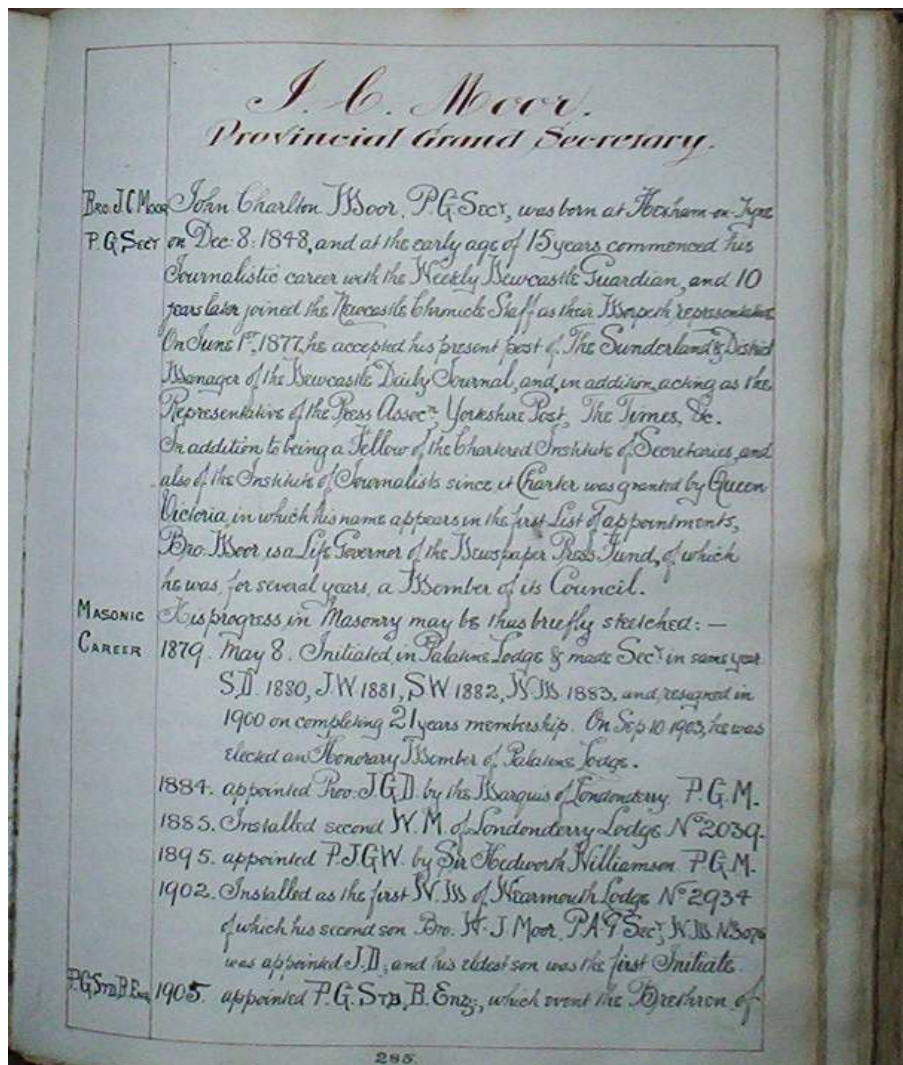 J. C. Moor.
Provincial Grand Secretary.
Bro. J C Moor John Charlton Moor, P.G. Secy, was born at Hexham-on-Tyne
P. G. Secy on Dec: 8: 1848, and at the early age of 15 years commenced his
Journalistic career with the Weekly Newcastle Guardian, and 10
years later joined the Newcastle Chronicle Staff as their Morpeth representative
On June 1st, 1877, he accepted his present post of The Sunderland & District
Manager of the Newcastle Daily Journal, and, in addition, acting as the
Representative of the Press Assocn, Yorkshire Post, The Times, &c.
In addition to being a Fellow of the Chartered Institute of Secretaries, and
also of the Institute of Journalists since it Charter was granted by Queen
Victoria, in which his name appears in the first List of appointments,
Bro: Moor is a Life Governor of the Newspaper Press Fund, of which
he was, for several years, a Member of its Council.
Masonic His progress in Masonry may be thus briefly sketched: —
Career 1879. May 8. Initiated in Palatine Lodge & made Secy in same year
S.D. 1880, J.W 1881, S W 1882, W.M 1883, and, resigned in
1900 on completing 21 years membership. On Sep 10 1903, he was
elected an Honorary Member of Palatine Lodge.
1884. appointed Prov: J.G.D. by the Marquis of Londonderry P.G.M.
1885. Installed second W.M. of Londonderry Lodge No 2039.
1895. appointed P.J.G.W. by Sir Hedworth Williamson P.G.M.
1902. Installed as the first W.M of Wearmouth Lodge No 2934
of which his second son Bro. H. J. Moor, P.A.G Secy, W.M. No 3076
was appointed J.D, and his eldest son was the first Initiate.
P.G. Std. B. Eng 1905. appointed P.G. Std, B. Eng:, which event the Brethren of
285.